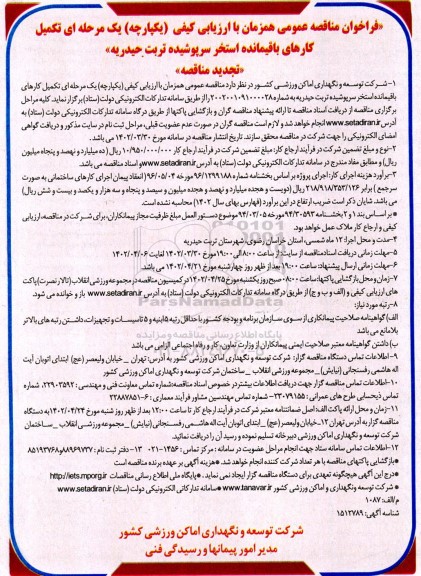 «فراخوان مناقصه عمومی همزمان با ارزیابی کیفی (یکپارچه) یک مرحله ای تکمیل
کارهای باقیمانده استخر سرپوشیده تربت حیدریه»
«تجدید مناقصه»
۱-شرکت توسعه و نگهداری اماکن ورزشی کشور در نظر دارد مناقصه عمومی همزمان با ارزیابی کیفی (یکپارچه) یک مرحله ای تکمیل کارهای
باقیمانده استخر سرپوشیده تربت حیدریه به شماره را از طریق سامانه تدارکات الکترونیکی دولت (ستاد) برگزار نماید. کلیه مراحل
برگزاری مناقصه از دریافت اسناد مناقصه تا ارائه پیشنهاد مناقصه گران و بازگشایی پاکتها از طریق درگاه سامانه تدارکات الکترونیکی دولت (ستاد) به
آدرس www.setadiran.ir انجام خواهد شد و لازم است مناقصه گران در صورت عدم عضویت قبلی، مراحل ثبت نام در سایت مذکور و دریافت گواهی
امضای الکترونیکی را جهت شرکت در مناقصه محقق سازند. تاریخ انتشار مناقصه در سامانه مورخ ۱۴۰۲/۰۳/۳۰ می باشد.
۲-نوع و مبلغ تضمین شرکت در فرآیند ارجاع کار: مبلغ تضمین شرکت در فرآیند ارجاع کار ۱۰/۹۵۰/۰۰۰/۰۰۰ ریال (ده میلیارد و نهصد و پنجاه میلیون
ریال) و مطابق مفاد مندرج در سامانه تدارکات الکترونیکی دولت (ستاد) به آدرس www.setadiran.ir و اسناد مناقصه می باشد.
۳-برآورد هزینه اجرای کار: اجرای پروژه بر اساس بخشنامه شماره ۹۶/۱۲۹۹۱۸۸ مورخ ۹۶/۰۵/۰۴ (انعقاد پیمان اجرای کارهای ساختمانی به صورت
سرجمع) برابر ۲۱۸/۹۱۸/۳۵۳/۱۲۶ ریال (دویست و هجده میلیارد و نهصد و هجده میلیون و سیصد و پنجاه و سه هزار و یکصد و بیست و شش ریال)
می باشد. شایان ذکر است ضریب ارتفاع در این برآورد (فهارس بهای سال ۱۴۰۲) محاسبه نشده است.
* بر اساس بند ۱ و ۲ بخشنامه ۹۴/۳۰۵۹۳ مورخ ۹۴/۰۳/۰۵ موضوع دستورالعمل مبلغ ظرفیت مجاز پیمانکاران، برای شرکت در مناقصه، ارزیابی
کیفی و ارجاع کار ملاک عمل خواهد بود.
۴-مدت و محل اجرا: ۱۲ ماه شمسی، استان خراسان رضوی، شهرستان تربت حیدریه
۵-مهلت زمانی دریافت اسناد مناقصه از سایت: از ساعت ۸:۰۰ الی ۱۹:۰۰ مورخ ۱۴۰۲/۰۳/۳۰ لغایت ۱۴۰۲/۰۴/۰۶
۶-مهلت زمانی ارسال پیشنهاد: ساعت ۱۹:۰۰ بعد از ظهر روز چهارشنبه مورخ ۱۴۰۲/۰۴/۲۱ می باشد.
۷-زمان و محل بازگشایی پاکتها: ساعت ۰۸:۰۰ صبح روز یکشنبه مورخ ۱۴۰۲/۰۴/۲۵ در کمیسیون مناقصه در مجموعه ورزشی انقلاب (تالار نصرت) پاکت
های ارزیابی کیفی و (الف و ب و ج) از طریق درگاه سامانه تدارکات الکترونیکی دولت (ستاد) به آدرس www.setadiran.ir باز و خوانده می شود.
۸-رتبه مورد نیاز:
الف) گواهینامه صلاحیت پیمانکاری از سوی سازمان برنامه و بودجه کشور با حداقل رتبه ۵ ابنیه و ۵ تاسیسات و تجهیزات، داشتن رتبه های بالاتر
بلامانع می باشد
ب) داشتن گواهینامه معتبر صلاحیت ایمنی پیمانکاران از وزارت تعاون، کار و رفاه اجتماعی الزامی می باشد
۹-اطلاعات تماس دستگاه مناقصه گزار: شرکت توسعه و نگهداری اماکن ورزشی کشور به آدرس: تهران _ خیابان ولیعصر (عج) ابتدای اتوبان آیت
اله هاشمی رفسنجانی (نیایش) _ مجموعه ورزشی انقلاب _ ساختمان شرکت توسعه و نگهداری اماکن ورزشی کشور
۱۰-اطلاعات تماس مناقصه گزار جهت دریافت اطلاعات بیشتر در خصوص اسناد مناقصه: شماره تماس معاونت فنی و مهندسی: ۲۲۹۰۳۵۹۲، شماره
تماس ذیحسابی طرح های عمرانی: ۲۳۰۷۹۱۵۵ - شماره تماس مهندسین مشاور فرآیند معماری: ۲۲۸۸۷۸۵۱-۶
۱۱-زمان و محل ارائه پاکت الف: اصل ضمانتنامه معتبر شرکت در فرآیند ارجاع کار تا ساعت ۱۲:۰۰ بعد از ظهر روز شنبه مورخ ۱۴۰۲/۰۴/۲۴ به دستگاه
مناقصه گزار به آدرس تهران ۱۲_ خیابان ولیعصر (عج) _ ابتدای اتوبان آیت اله هاشمی رفسنجانی (نیایش) _ مجموعه ورزشی انقلاب _ ساختمان
شرکت توسعه و نگهداری اماکن ورزشی دبیرخانه تسلیم نموده و رسید آن را دریافت نمائید.
۱۲-اطلاعات تماس سامانه ستاد جهت انجام مراحل عضویت در سامانه: مرکز تماس: ۱۴۵۶-۰۲۱ ۱۳-دفتر ثبت نام: ۸۸۹۶۹۷۳۷ و ۸۵۱۹۳۷۶۸
* بازگشایی پاکتهای مناقصه با هر تعداد شرکت کننده انجام خواهد شد. * هزینه آگهی بر عهده برنده مناقصه است
* درج این آگهی هیچگونه تعهدی برای دستگاه مناقصه گزار ایجاد نمی نماید. * پایگاه ملی اطلاع رسانی مناقصات http://iets.mporg.ir
* شرکت توسعه ونگهداری و اماکن ورزشی کشور www.tanavar.ir * سامانه تدارکاتی الکترونیکی دولت (ستاد) www.setadiran.ir
م/الف: ۱۰۸۷
شناسه آگهی: ۱۵۱۳۷۸۹
شرکت توسعه و نگهداری اماکن ورزشی کشور
مدیر امور پیمانها و رسیدگی فنی